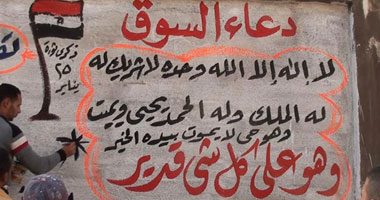 دعاء السوق
لا إله إلا الله وحده لا شريك له
له الملك وله الحمد يحيى ويميت
وهو حى لا يموت بيده الخير
وهو على كل شئ قدير
ذكرى ثورة
٢٥
يناير